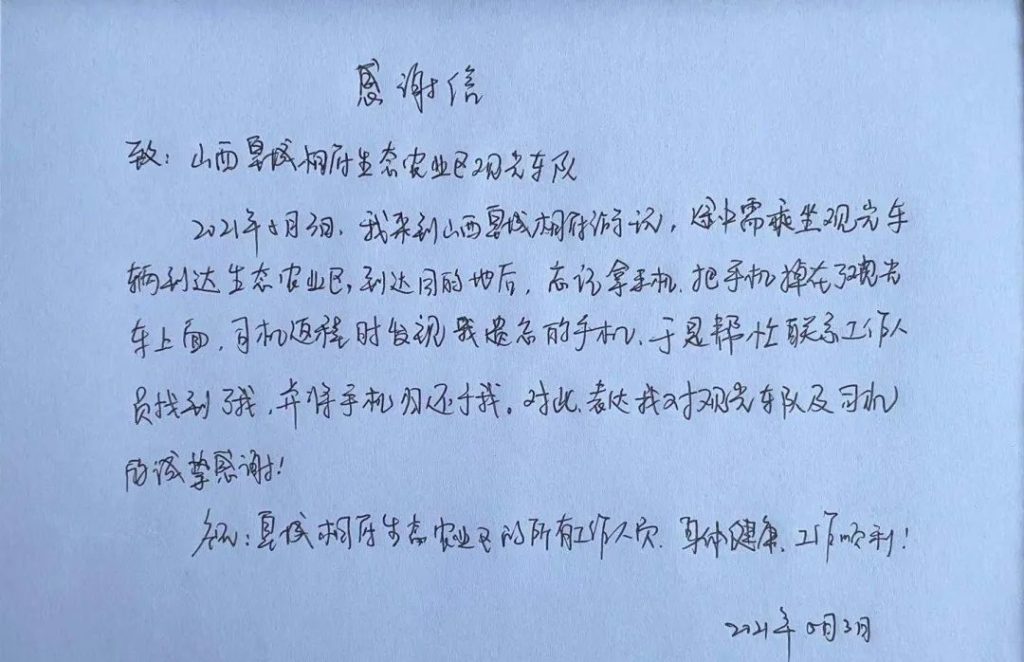 感谢信
致：山西皇城相府生态农业区观光车队
2021年5月3日，我来到山西皇城相府游玩，途中需乘坐观光车
辆到达生态农业区，到达目的地后，忘记拿手机，把手机掉在了观光
车上面，司机返程时发现我遗忘的手机，于是帮忙联系工作人
员找到了我，并将手机归还于我。对此，表达我对观光车队及司机
的诚挚感谢！
祝：皇城相府生态农业区的所有工作人员，身体健康，工作顺利！
2021年5月3日